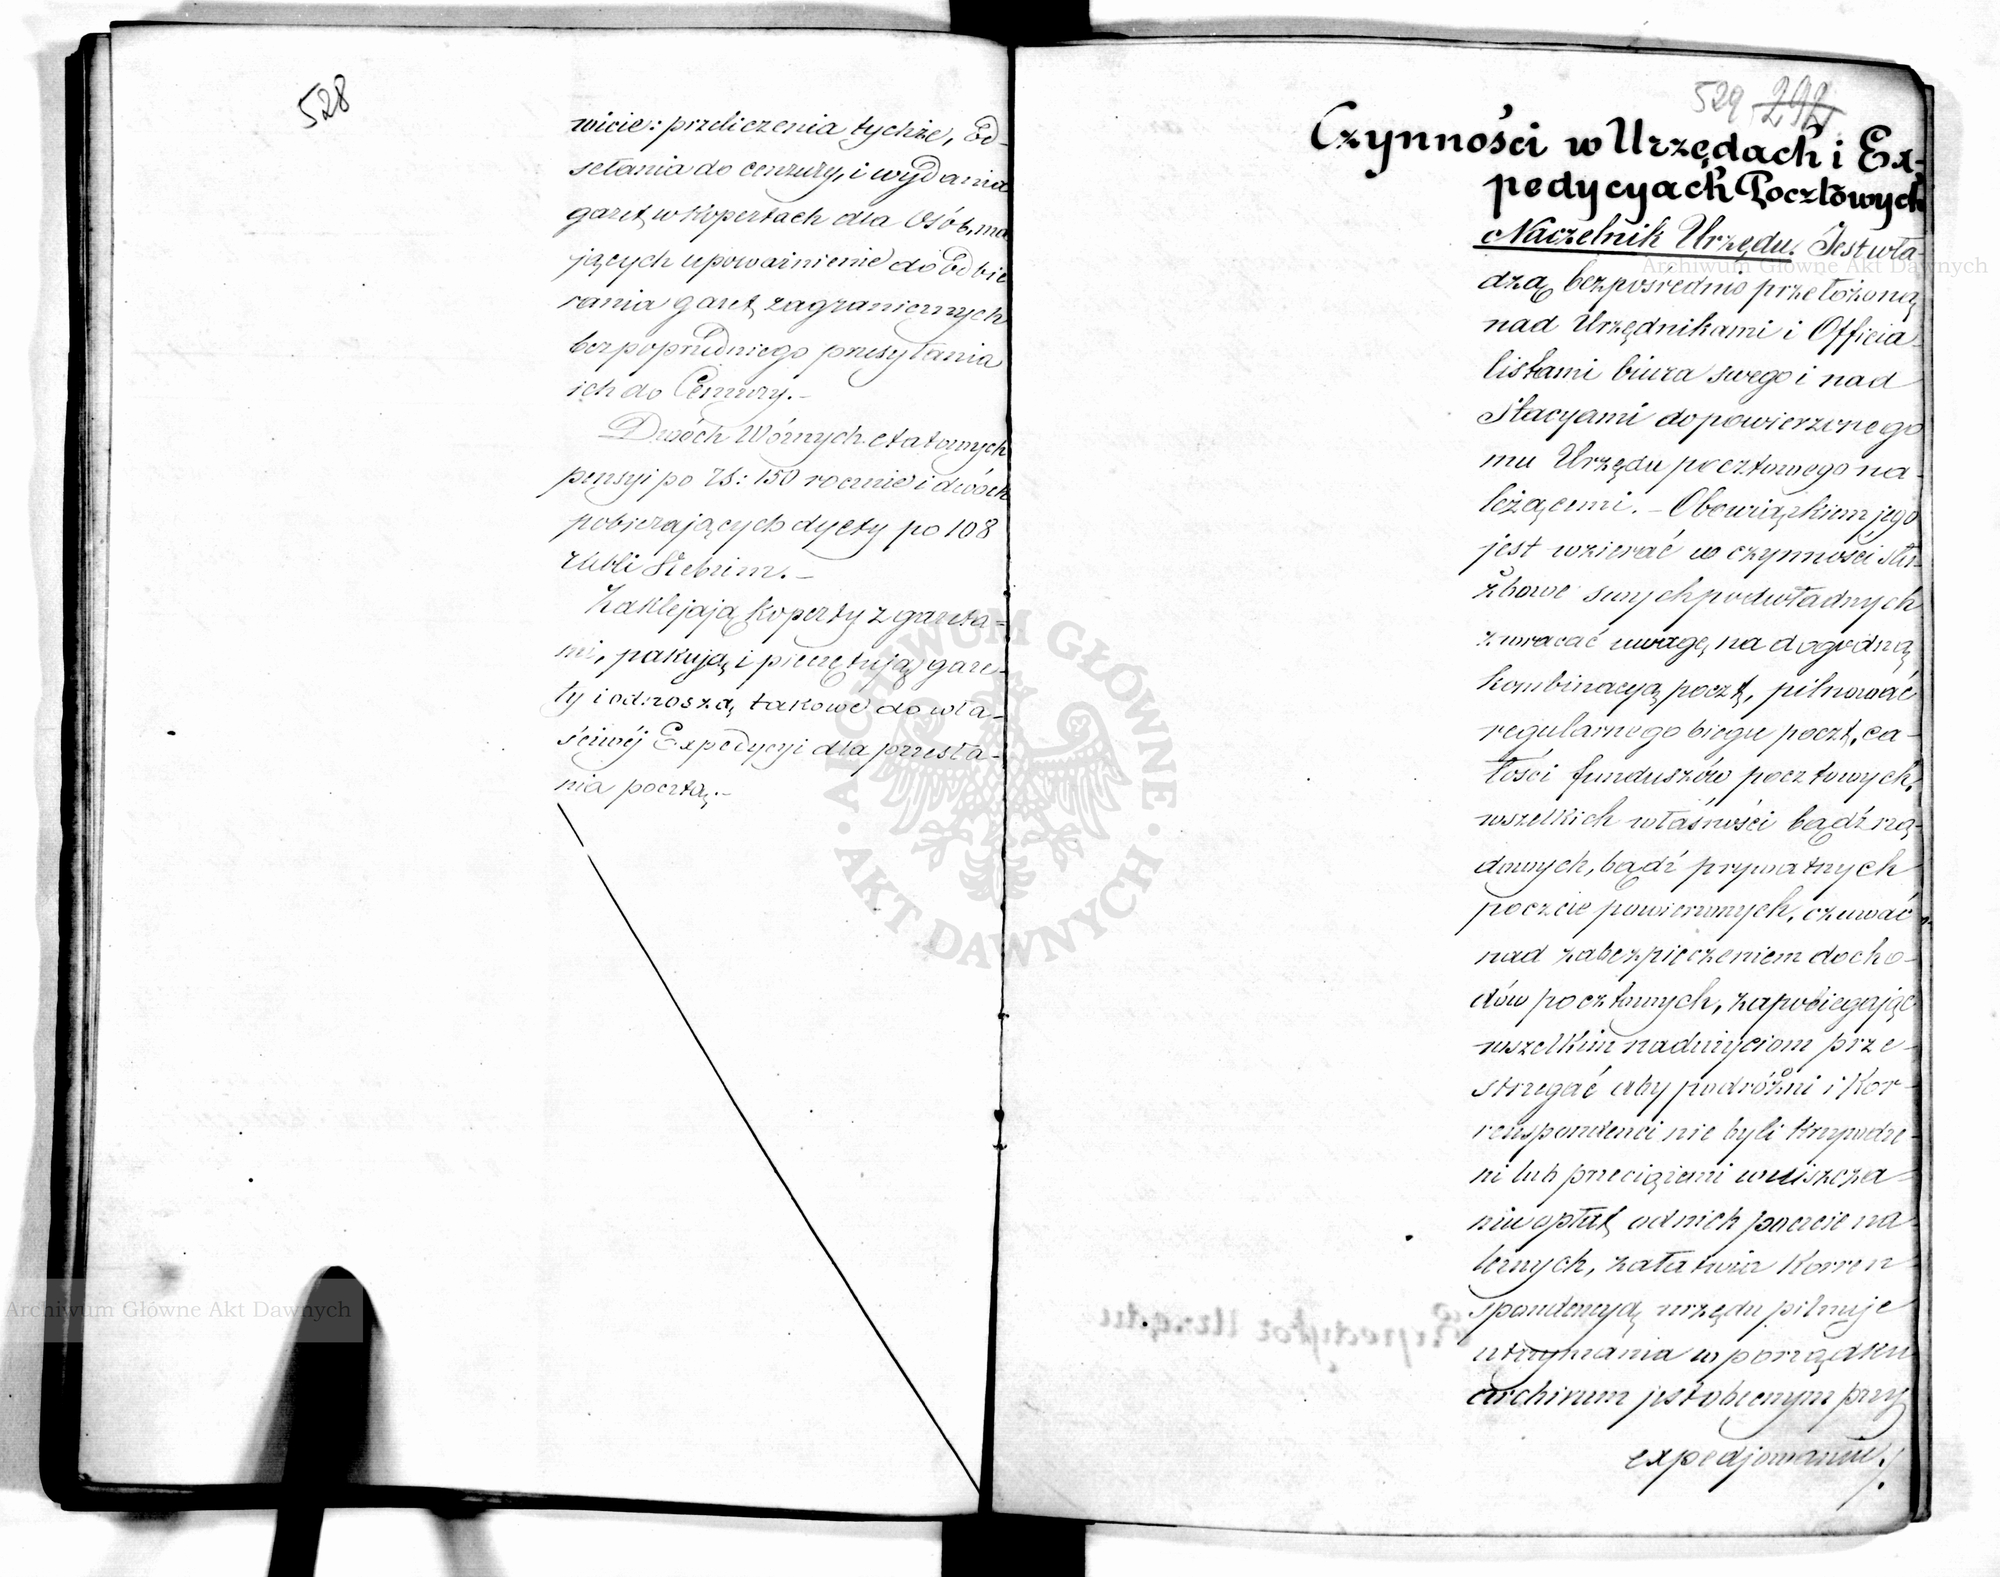 528
wicie: przeliczenia tychże, Od-
sełania do cenzury, i wydania
gazet w kopertach dla Osób, ma
jących upoważnienie do Odbie
rania gazet zagranicznych
bez poprzedniego przesyłania
ich do Cenzury.–
Dwóch Woźnych etatowych
pensyi po rs: 150 rocznie i dwóch
pobierających dyety po 108
rubli Srebrem.–
Zaklejają koperty z gazeta-
mi, pakują i pieczętują gaze-
ty i odnoszą takowe do wła-
ściwéj Expedycyi dla przesła-
nia pocztą.–
529 292
Czynności w Urzędach i Ex-
pedycyach Pocztowych
Naczelnik Urzędu. Jest wła-
dzą bezpośrednio przełożoną
nad Urzędnikami i Officia-
listami biura swego i nad
Stacyami do powierzonego
mu Urzędu pocztowego na-
leżącemi.– Obowiązkiem jego
jest wzierać w czynności słu-
żbowe swych podwładnych
zwracać uwagę na dogodną
kombinacyą poczt, pilnować
regularnego biegu poczt, ca-
łości funduszów pocztowych,
wszelkich własności bądź rzą-
dowych, bądź prywatnych
poczcie powierzonych, czuwać
nad zabezpieczeniem docho-
dów pocztowych, zapobiegając
wszelkim nadużyciom prze-
strzegać aby podróżni i Kor-
respondenci nie byli krzywdze-
ni lub przeciążeni w uiszcza-
niu opłat od nich poczcie na
leżnych, załatwia Korren
spondencyą urzędu pilnuje
utrzymania w porządku
archiwum jest obecnym przy
expedjowaniu/.
Expedytor Urzędu
ARCHIWUM GŁÓWNE AKT DAWNYCH
Archiwum Główne Akt Dawnych
Archiwum Główne Akt Dawnych